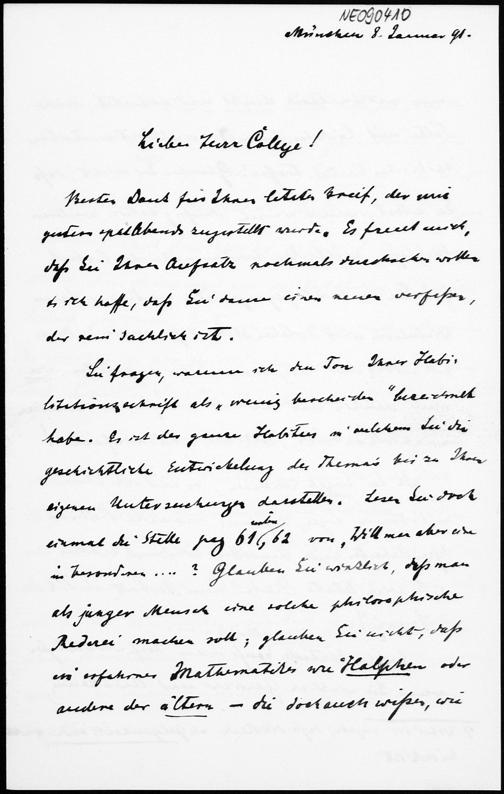 NE090410
München 8. Januar 91.
Lieber Herr College!
Besten Dank für Ihren letzten Brief, der mir
gestern spät Abends zugestellt wurde. Es freut mich,
daß Sie Ihren Aufsatz nochmals durchsehen wollen
u. ich hoffe, daß Sie dann einen neuen verfaßen,
der rein sachlich ist.
Sie fragen, warum ich den Ton Ihrer Habi-
litationsschrift als „wenig bescheiden" bezeichnet
habe. Es ist der ganze Habitus in welchem Sie die
geschichtliche Entwickelung des Themas bis zu Ihren
eigenen Untersuchungen darstellen. Lesen Sie doch
einmal die Stelle pag 61, 62 von „Will man aber eine
im besonderen .... ? Glauben Sie wirklich, daß man
als junger Mensch eine solche philosophische
Rederei machen soll; glauben Sie nicht, daß
ein erfahrner Mathematiker wie Halphen oder
andere der ältern — die doch auch wißen, wie